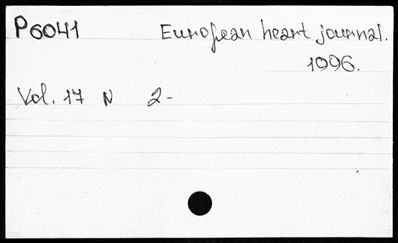 P6041 European heart journal.
1996.
Vol. 17 N 2-